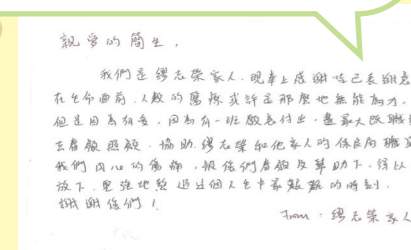 親愛的簡生，
我們是繆志榮家人，現奉上感謝咭已表謝意
在生命面前，人般的醫療或許是那麼地無能為力，
但是因為有愛，因為有一班敬意付出，盡最大
去看顧照顧，協助繆志榮和他家人的
我們內心的傷痛，被您們看顧及幫助下，得以
放下，更強地幫過這個人生中最艱難的時刻．
謝謝您們！
from：繆志榮家人